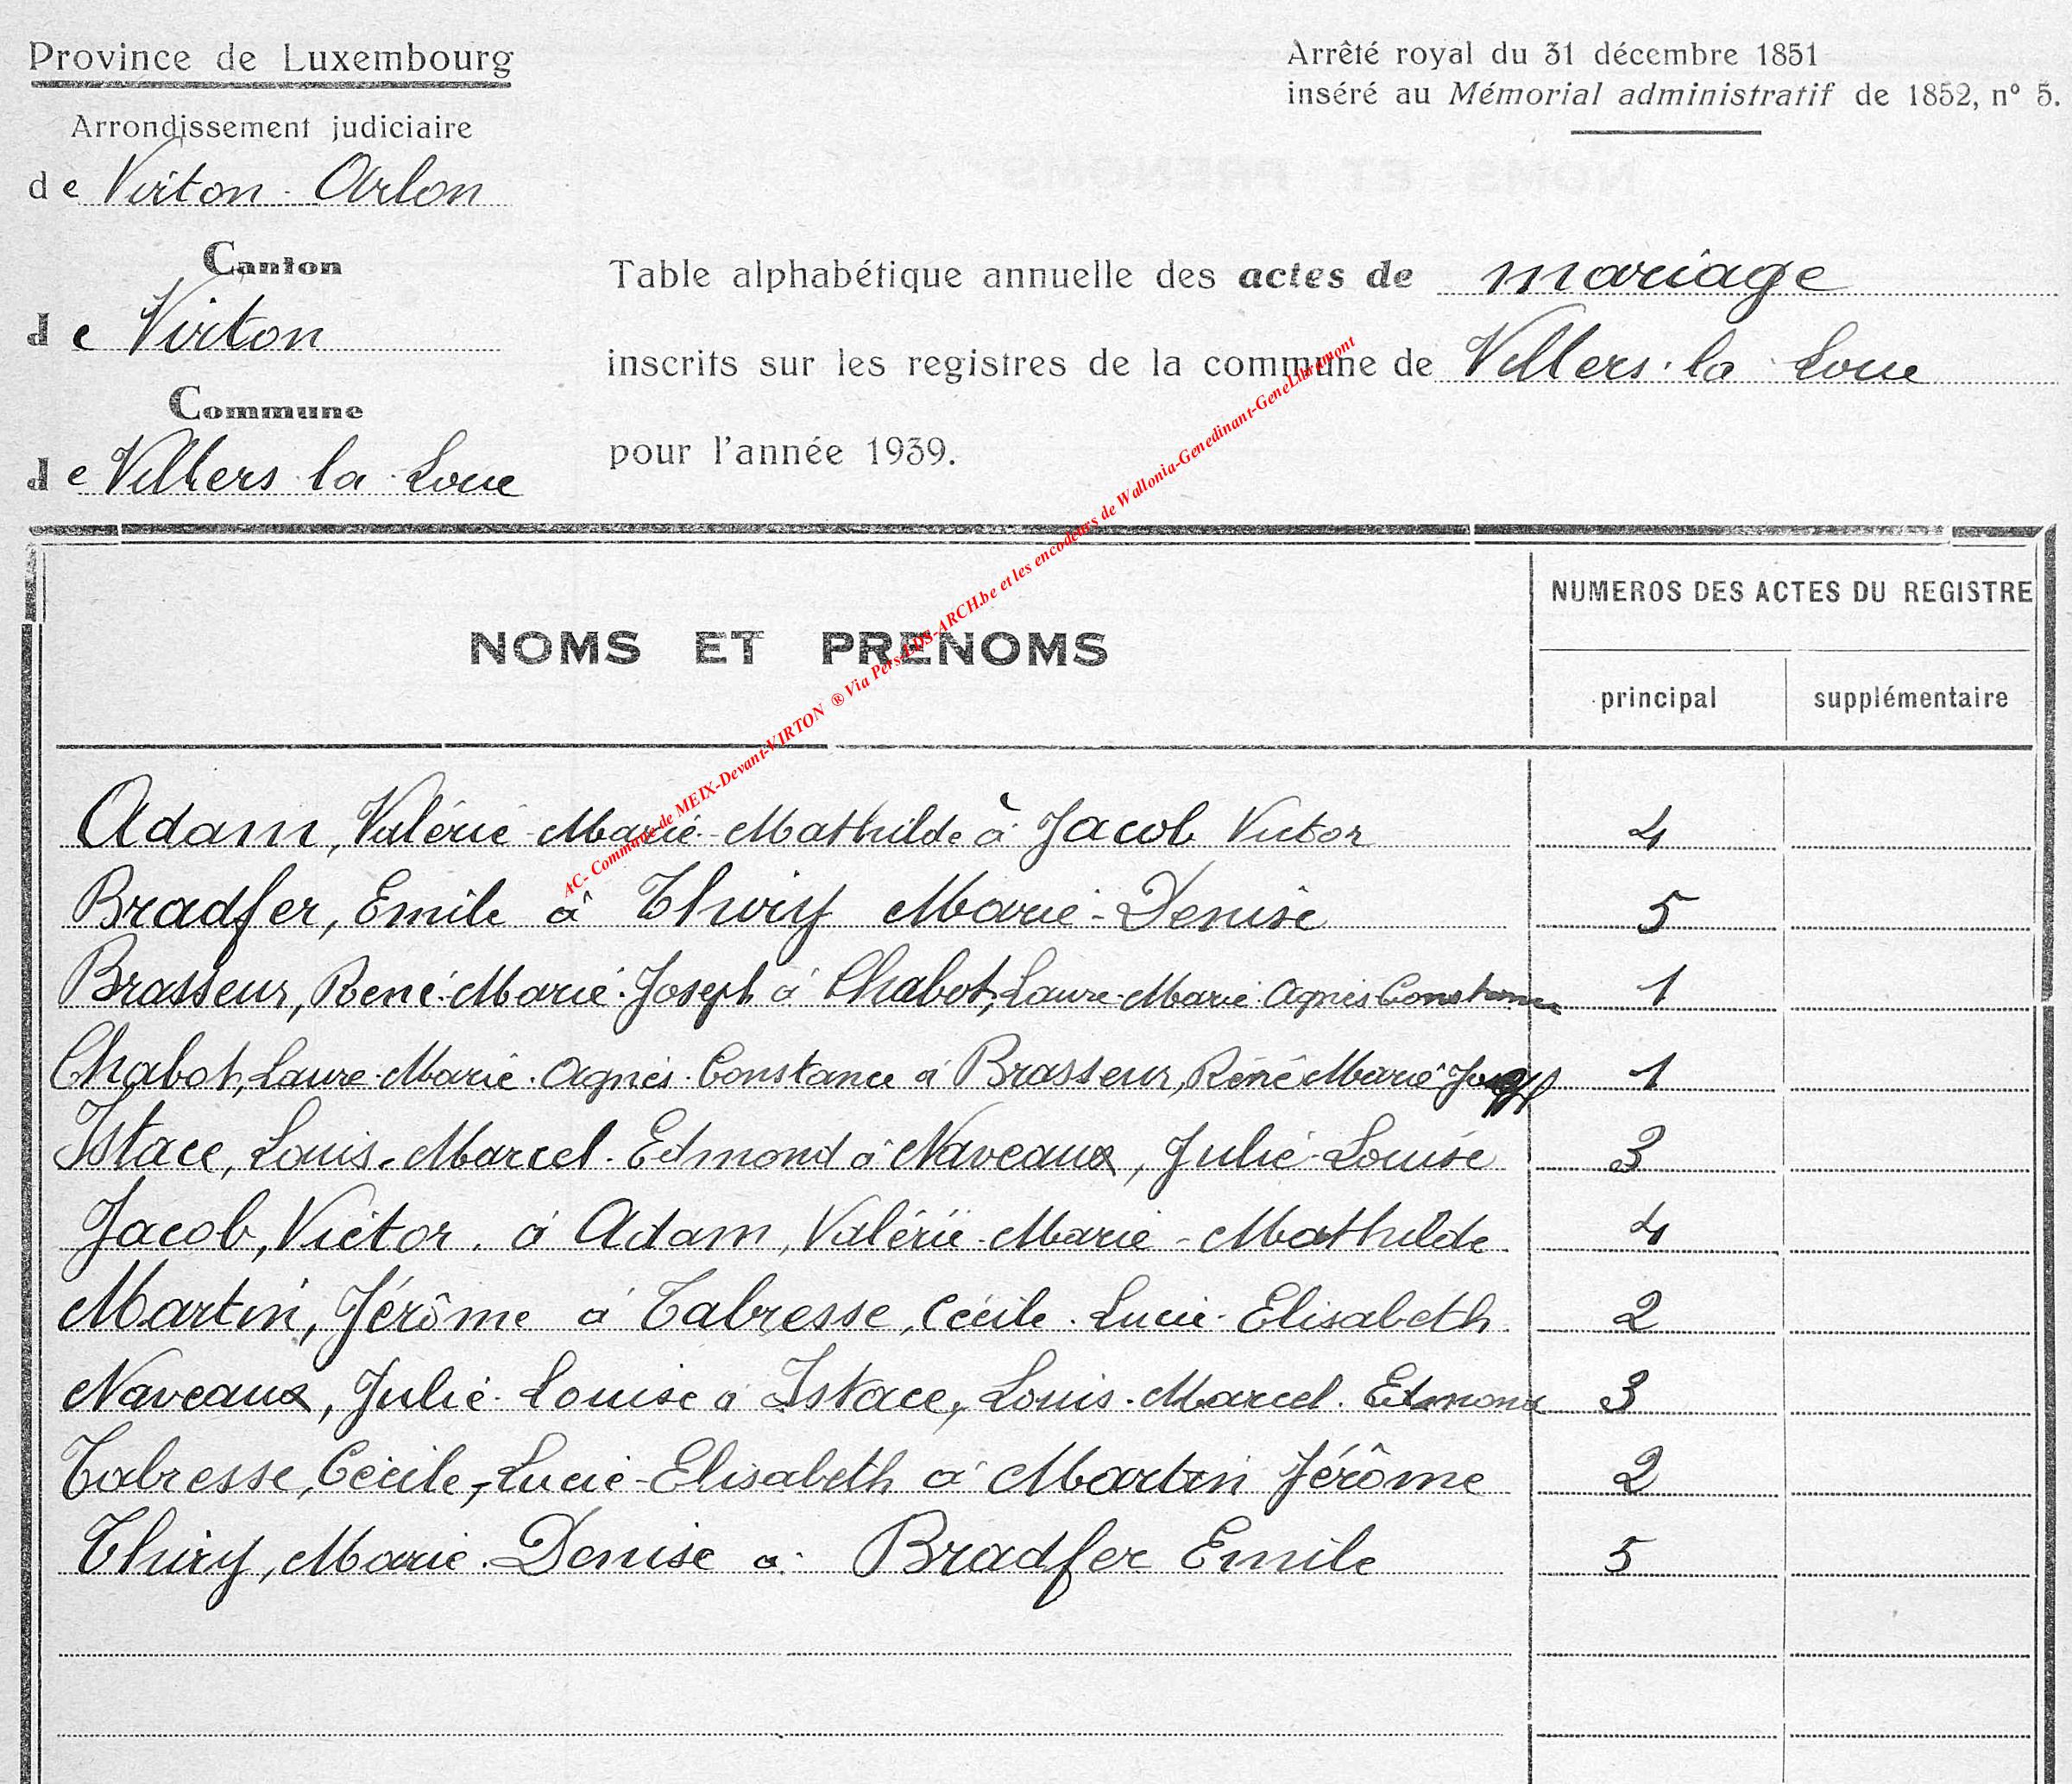 Province de Luxembourg
Arrondissement judiciaire
de Virton - Arlon
Canton
de Virton
Commune
de Villers la Loue
Arrêté royal du 31 décembre 1851
inséré au Mémorial administratif de 1852, n° 5.
Table alphabétique annuelle des actes de mariage
inscrits sur les registres de la commune de Villers-la Loue
pour l'année 1939.
AC- Commune de MEIX-Devant-VIRTON ® Via Pers-LDS-ARCH.be et les encodeurs de Wallonia-Genedinant-GeneLibramont
NOMS ET PRENOMS
NUMEROS DES ACTES DU REGISTRE
principal supplémentaire
Adam, Valérie-Marie-Mathilde à Jacob Victor 4
Bradfer, Emile à Thiry Marie-Denise 5
Brasseur, René-Marie-Joseph à Chabot, Laure-Marie-Agnès Constance 1
Chabot, Laure-Marie-Agnès-Constance à Brasseur, René Marie Joseph 1
Istace, Louis-Marcel-Edmond à Naveaux, Julie-Louise 3
Jacob, Victor. à Adam, Valérie-Marie-Mathilde 4
Martin, Jérôme à Tabresse, Cécile-Lucie-Elisabeth 2
Naveaux, Julie-Louise à Istace, Louis-Marcel-Edmond 3
Tabresse, Cécile-Lucie-Elisabeth à Martin Jérôme 2
Thiry, Marie-Denise à Bradfer Emile 5